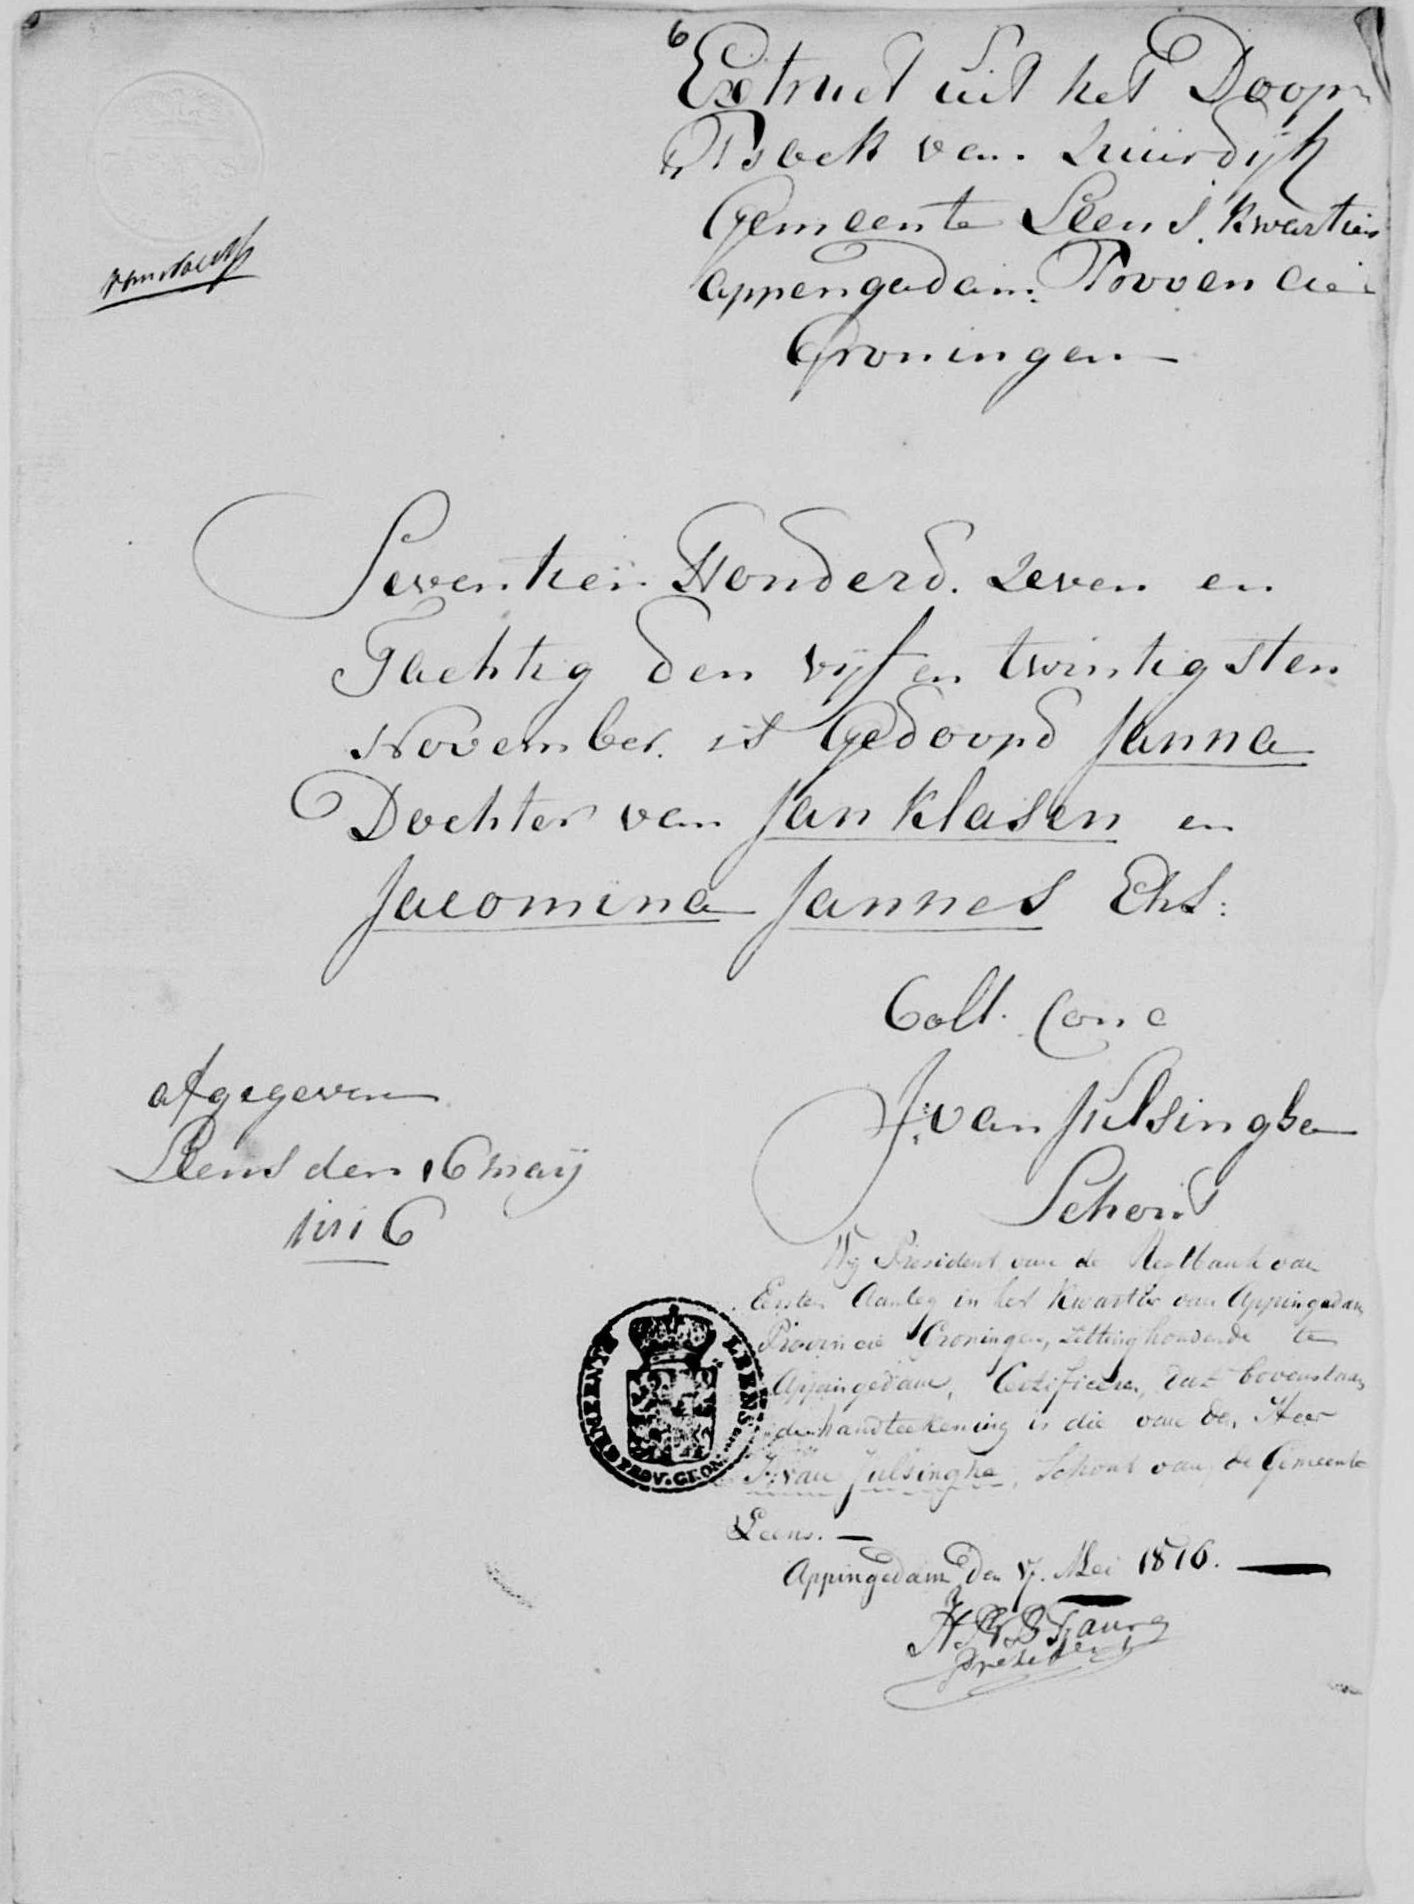 6
Extract uit het Doop
Boek van Zuurdijk
Gemeente Leens. Kwartier
Appengadam: Provencie
Groningen
Seventien Honderd. Zeven en
Tachtig den vijf en twintigsten
November. is Gedoopd Janna
Dochter van Jan Klasen en
Jacomina Jannes Ehs:
Coll. Conc
J. van Julsingha
Schout
afgegeven
Leens den 16 maij
1816
Wij President van de Regtbank van
Eersten Aanleg in het Kwartier van Appingadam
Provincie Groningen, zittinghoudende te
Appingedam, Certificeren, dat bovenstaan
de handteekening is die van den Heer
J. van Julsingha, Schout van de Gemeente
Leens. —
Appingedam Den 17. Mei 1816. —
President
GEMEENTE LEENS
PROV. GRON.